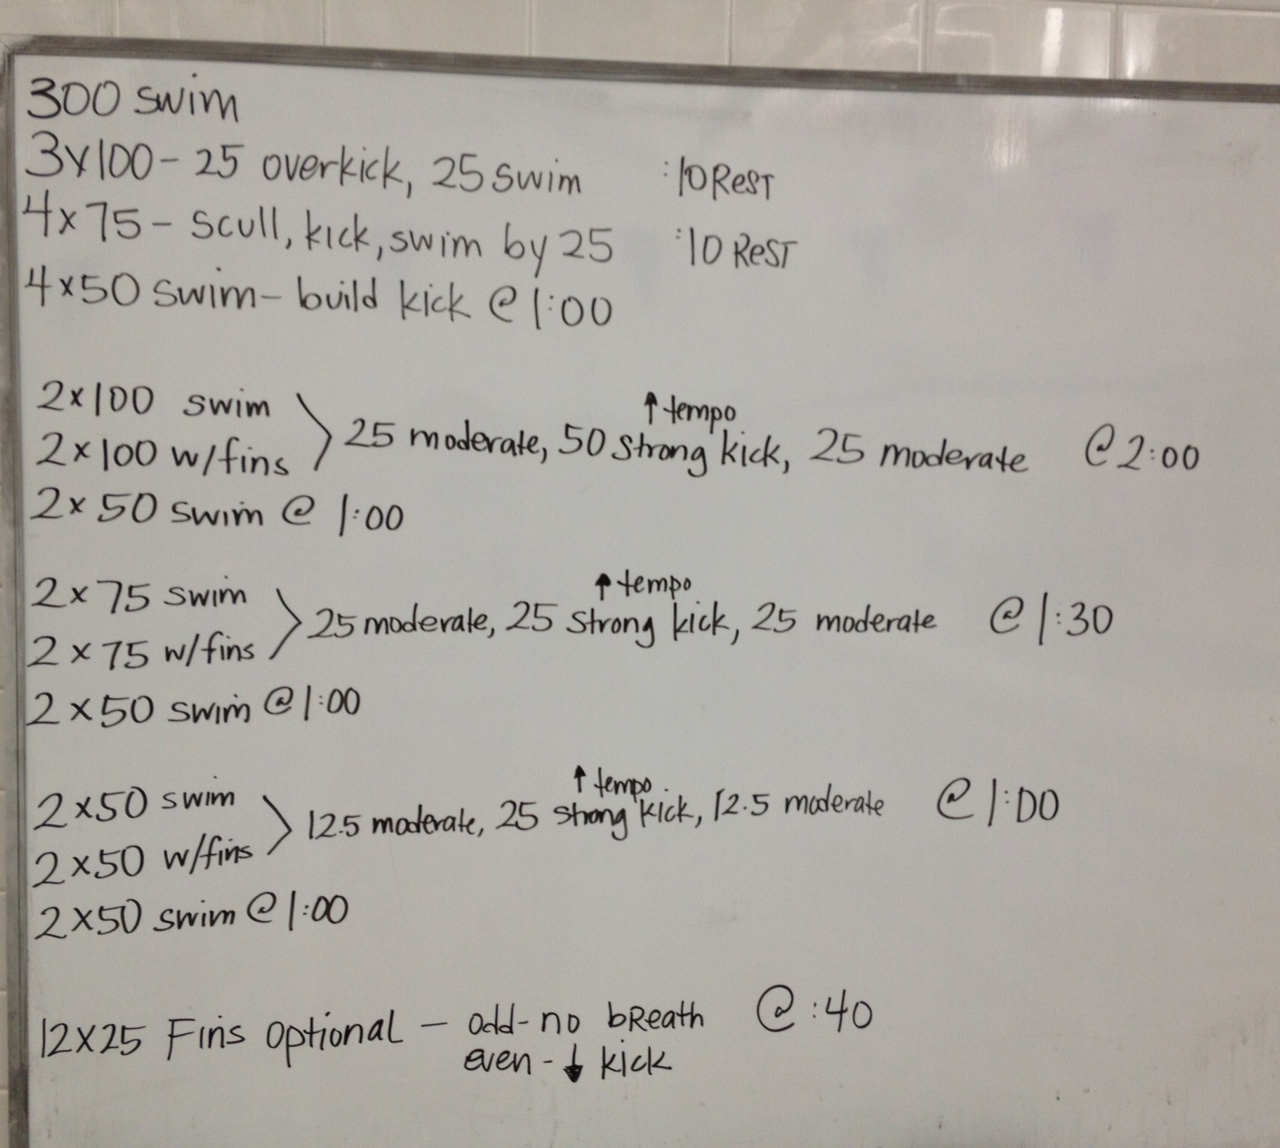 300 swim
3x100- 25 overkick, 25 swim :10 ReST
4x75- scull, kick, swim by 25 :10 ReST
4x50 swim- build kick @ 1:00
2x100 swim
2x100 w/fins
↑ tempo
25 moderate, 50 strong kick, 25 moderate @ 2:00
2x 50 swim @ 1:00
2x75 swim
2x75 w/fins
↑ tempo
25 moderate, 25 strong kick, 25 moderate @ 1:30
2x50 swim @ 1:00
2x50 swim
2x50 w/fins
↑ tempo
12.5 moderate, 25 strong kick, 12.5 moderate @ 1:00
2x50 swim @ 1:00
12x25 Fins optional - odd- no bReath @ :40
even- ↓ kick